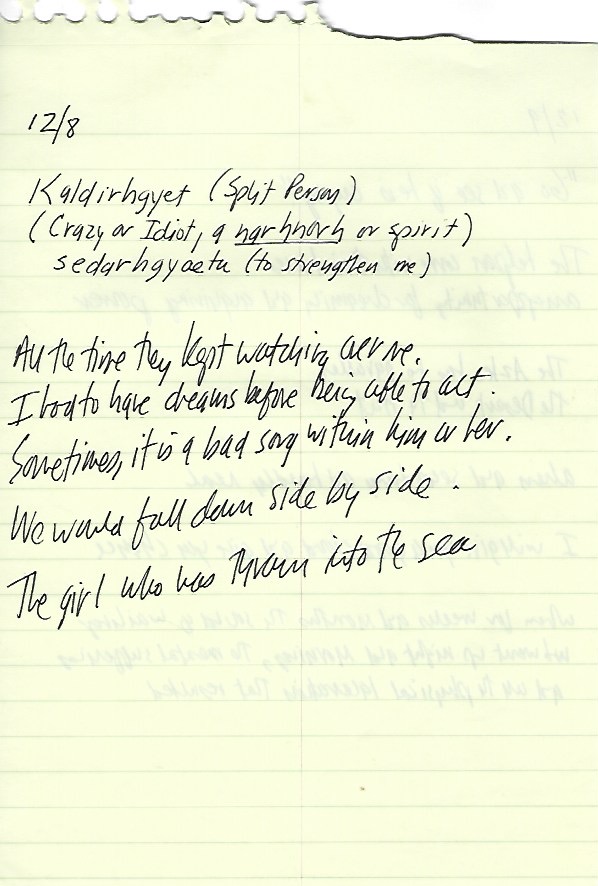 12/8
Kaldirhgyet (Split Person)
(Crazy or Idiot, a narhnorh or spirit)
sedarhgyaetu (to strengthen me)
All the time they kept watching over me.
I had to have dreams before being able to act.
Sometimes, it is a bad song within him or her.
We would fall down side by side.
The girl who was thrown into the sea